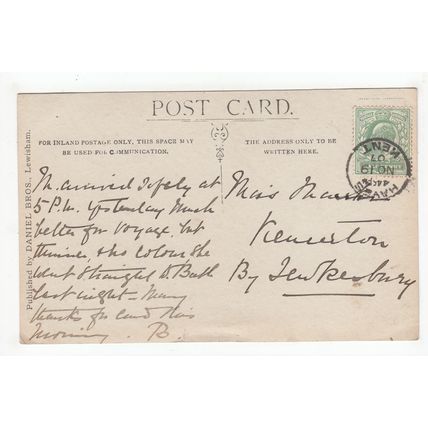 POST CARD.
FOR INLAND POSTAGE ONLY, THIS SPACE MAY
BE USED FOR COMMUNICATION.
THE ADDRESS ONLY TO BE
WRITTEN HERE.
Published by DANIEL BROS., Lewisham.
M. arrived safely at
5 P.M. yesterday Much
better for voyage. but
thinner, & no colour She
went straight to Bath
last night - Many
thanks for card this
morning. B.
Miss
Kemerton
By Tewkesbury
HAYES
KENT
NO 19
07